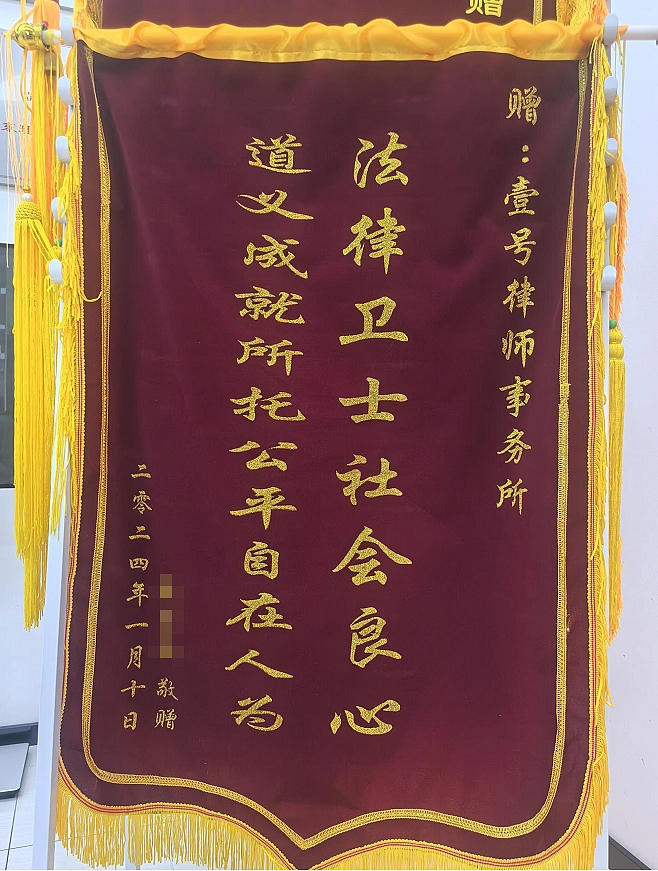 赠
赠：壹号律师事务所
法律卫士社会良心
道义成就所托公平自在人为
敬赠
二零二四年一月十日